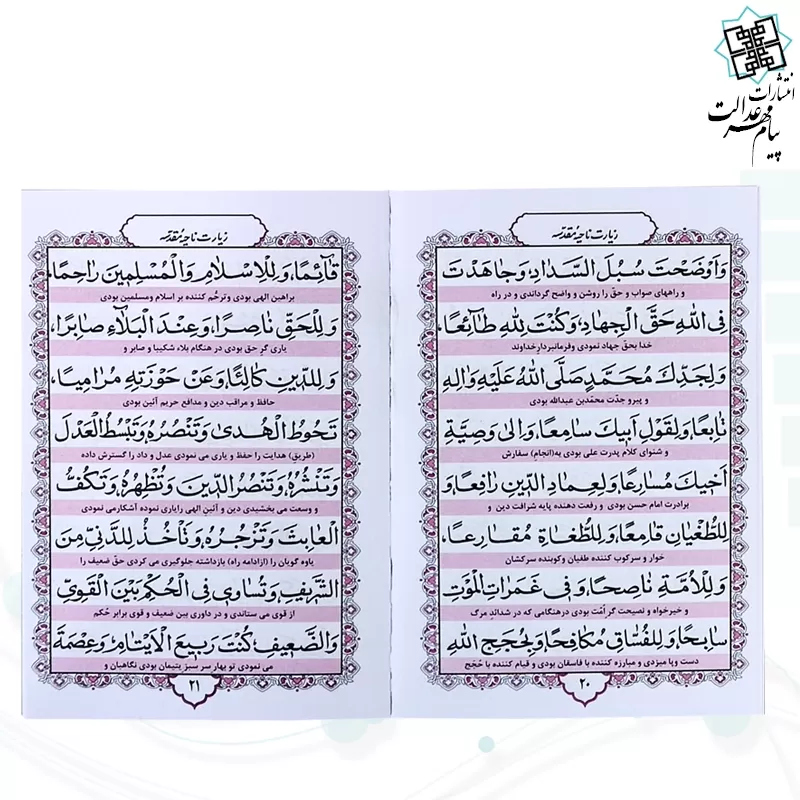 انتشارات
پیام مهر عدالت
زیارت ناحیه مقدسه
وَاَوْضَحْتَ سُبُلَ السَّدادِ، وَجاهَدْتَ
و راههای صواب و حقّ را روشن و واضح گرداندی و در راه
فِی اللهِ حَقَّ الْجِهادِ، وَكُنْتَ لِلّٰهِ طآئِعًا،
خدا بحقّ جهاد نمودی وفرمانبردار خداوند
وَلِجَدِّكَ مُحَمَّدٍ صَلَّى اللهُ عَلَيْهِ وَالِهِ
و پیرو جدّت محمّدبن عبدالله بودی
تابِعًا، وَلِقَوْلِ اَبيكَ سامِعًا، وَاِلىٰ وَصِيَّةِ
و شنوای کلام پدرت علی بودی به(انجام) سفارش
اَخيكَ مُسارِعًا، وَلِعِمادِ الدّينِ رافِعًا، وَ
برادرت امام حسن بودی و رفعت دهنده پایه شرافت دین و
لِلطُّغْيانِ قامِعًا، وَلِلطُّغاةِ مُقارِعًا،
خوار و سرکوب کننده طغیان وکوبنده سرکشان
وَلِلْاُمَّةِ ناصِحًا، وَفی غَمَراتِ الْمَوْتِ
و خیرخواه و نصیحت گر اُمّت بودی درهنگامی که در شدائدِ مرگ
سابِحًا، وَلِلْفُسّاقِ مُكافِحًا، وَبِحُجَجِ اللهِ
دست وپا میزدی و مبارزه کننده با فاسقان بودی و قیام کننده با حُجَج
۲۰
زیارت ناحیه مقدسه
قآئِمًا، وَلِلْاِسْلامِ وَالْمُسْلِمينَ راحِمًا،
براهین الهی بودی وترحّم کننده بر اسلام ومسلمین بودی
وَلِلْحَقِّ ناصِرًا، وَعِنْدَ الْبَلآءِ صابِرًا،
یاری گر حق بودی در هنگام بلاء شکیبا و صابر و
وَلِلدّينِ كالِئًا، وَعَنْ حَوْزَتِهِ مُرامِيًا،
حافظ و مراقب دین و مدافع حریم آئین بودی
تَحُوطُ الْهُدىٰ وَتَنْصُرُهُ، وَتَبْسُطُ الْعَدْلَ
(طریق) هدایت را حفظ و یاری می نمودی عدل و داد را گسترش داده
وَتَنْشُرُهُ، وَتَنْصُرُ الدّينَ وَتُظْهِرُهُ، وَتَكُفُّ
و وسعت می بخشیدی دین و آئینِ الهی رایاری نموده آشکارمی نمودی
الْعابِثَ وَتَزْجُرُهُ، وَتَأْخُذُ لِلدَّنِیِّ مِنَ
یاوه گویان را (ازادامه راه) بازداشته جلوگیری می کردی حقّ ضعیف را
الشَّريفِ، وَتُساوی فِی الْحُكْمِ بَيْنَ الْقَوِیِّ
از قوی می ستاندی و در داوری بین ضعیف و قوی برابر حُکم
وَالضَّعيفِ، كُنْتَ رَبيعَ الْاَيْتامِ، وَعِصْمَةَ
می نمودی تو بهار سر سبز یتیمان بودی نگاهبان و
۲۱